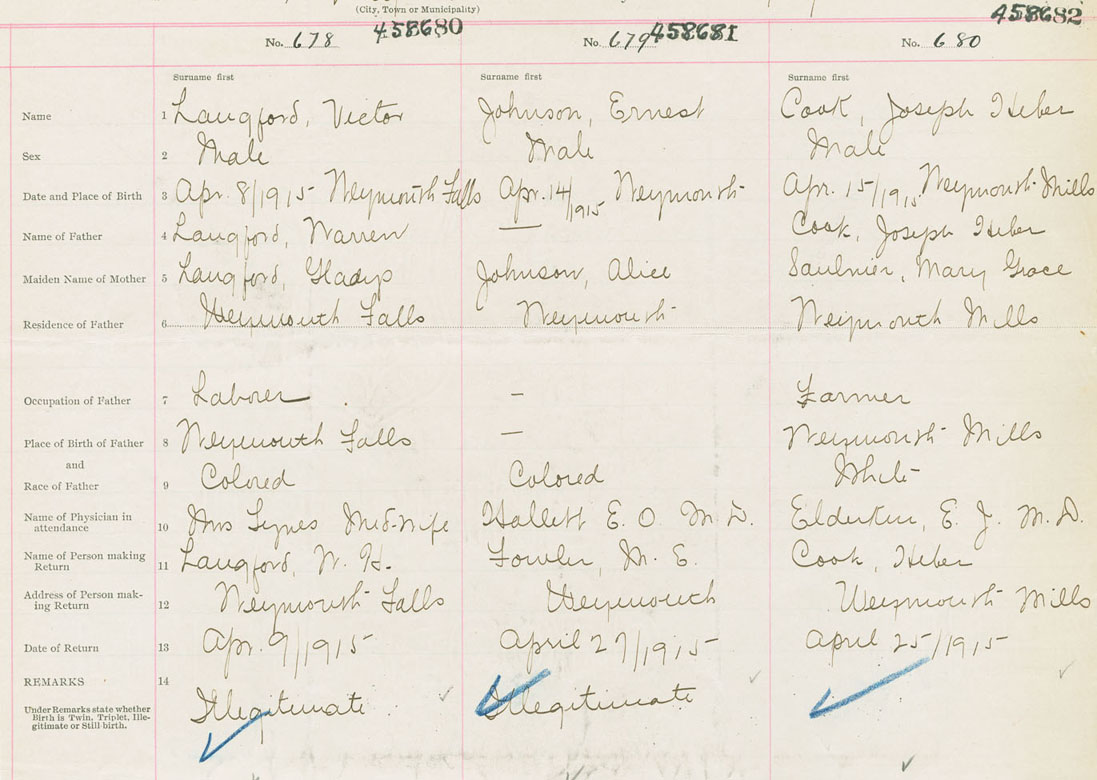 (City, Town or Municipality)
458680 458681 458682
No. 678 No. 679 No. 680
Surname first Surname first Surname first
Name 1 Langford, Victor Johnson, Ernest Cook, Joseph Heber
Sex 2 Male Male Male
Date and Place of Birth 3 Apr. 8/1915 Weymouth Falls Apr. 14/1915 Weymouth Apr. 15/1915 Weymouth Mills
Name of Father 4 Langford, Warren — Cook, Joseph Heber
Maiden Name of Mother 5 Langford, Gladys Johnson, Alice Saulnier, Mary Grace
Residence of Father 6 Weymouth Falls Weymouth Weymouth Mills
Occupation of Father 7 Laborer — Farmer
Place of Birth of Father 8 Weymouth Falls — Weymouth Mills
and
Race of Father 9 Colored Colored White
Name of Physician in
attendance 10 Mrs Med-Wife Hallett E. O. M. D. Elderkin, E. J. M. D.
Name of Person making
Return 11 Langford, W. H. Fowler, M. E. Cook, Heber
Address of Person mak-
ing Return 12 Weymouth Falls Weymouth Weymouth Mills
Date of Return 13 Apr. 9/1915 April 27/1915 April 25/1915
REMARKS 14
Under Remarks state whether
Birth is Twin, Triplet, Ille-
gitimate or Still birth.
Illegitimate Illegitimate